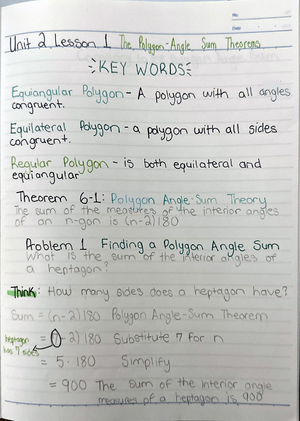 No.
Unit 2 Lesson 1 The Polygon-Angle Sum Theorems
KEY WORDS
Equiangular Polygon - A polygon with all angles
congruent.
Equilateral Polygon - a polygon with all sides
congruent.
Regular Polygon - is both equilateral and
equiangular
Theorem 6-1: Polygon Angle-Sum Theory
The sum of the measures of the interior angles
of an n-gon is (n-2)180
Problem 1 Finding a Polygon Angle Sum
What is the sum of the interior angles of
a heptagon?
Think: How many sides does a heptagon have?
Sum = (n-2)180 Polygon Angle-Sum Theorem
heptagon
has 7 sides
= (7-2)180 Substitute 7 for n
= 5·180 Simplify
= 900 The sum of the interior angle
measures of a heptagon is 900